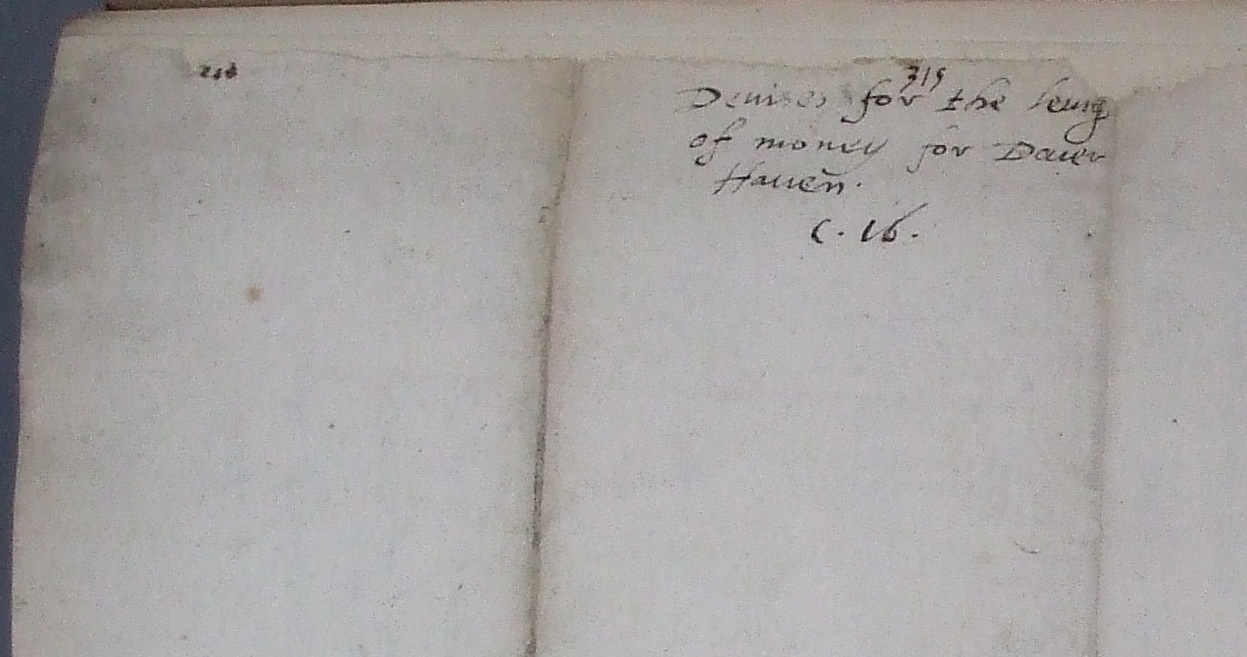 319
Deuises for the leuig
of money for Douer
Hauen.
C. 16.